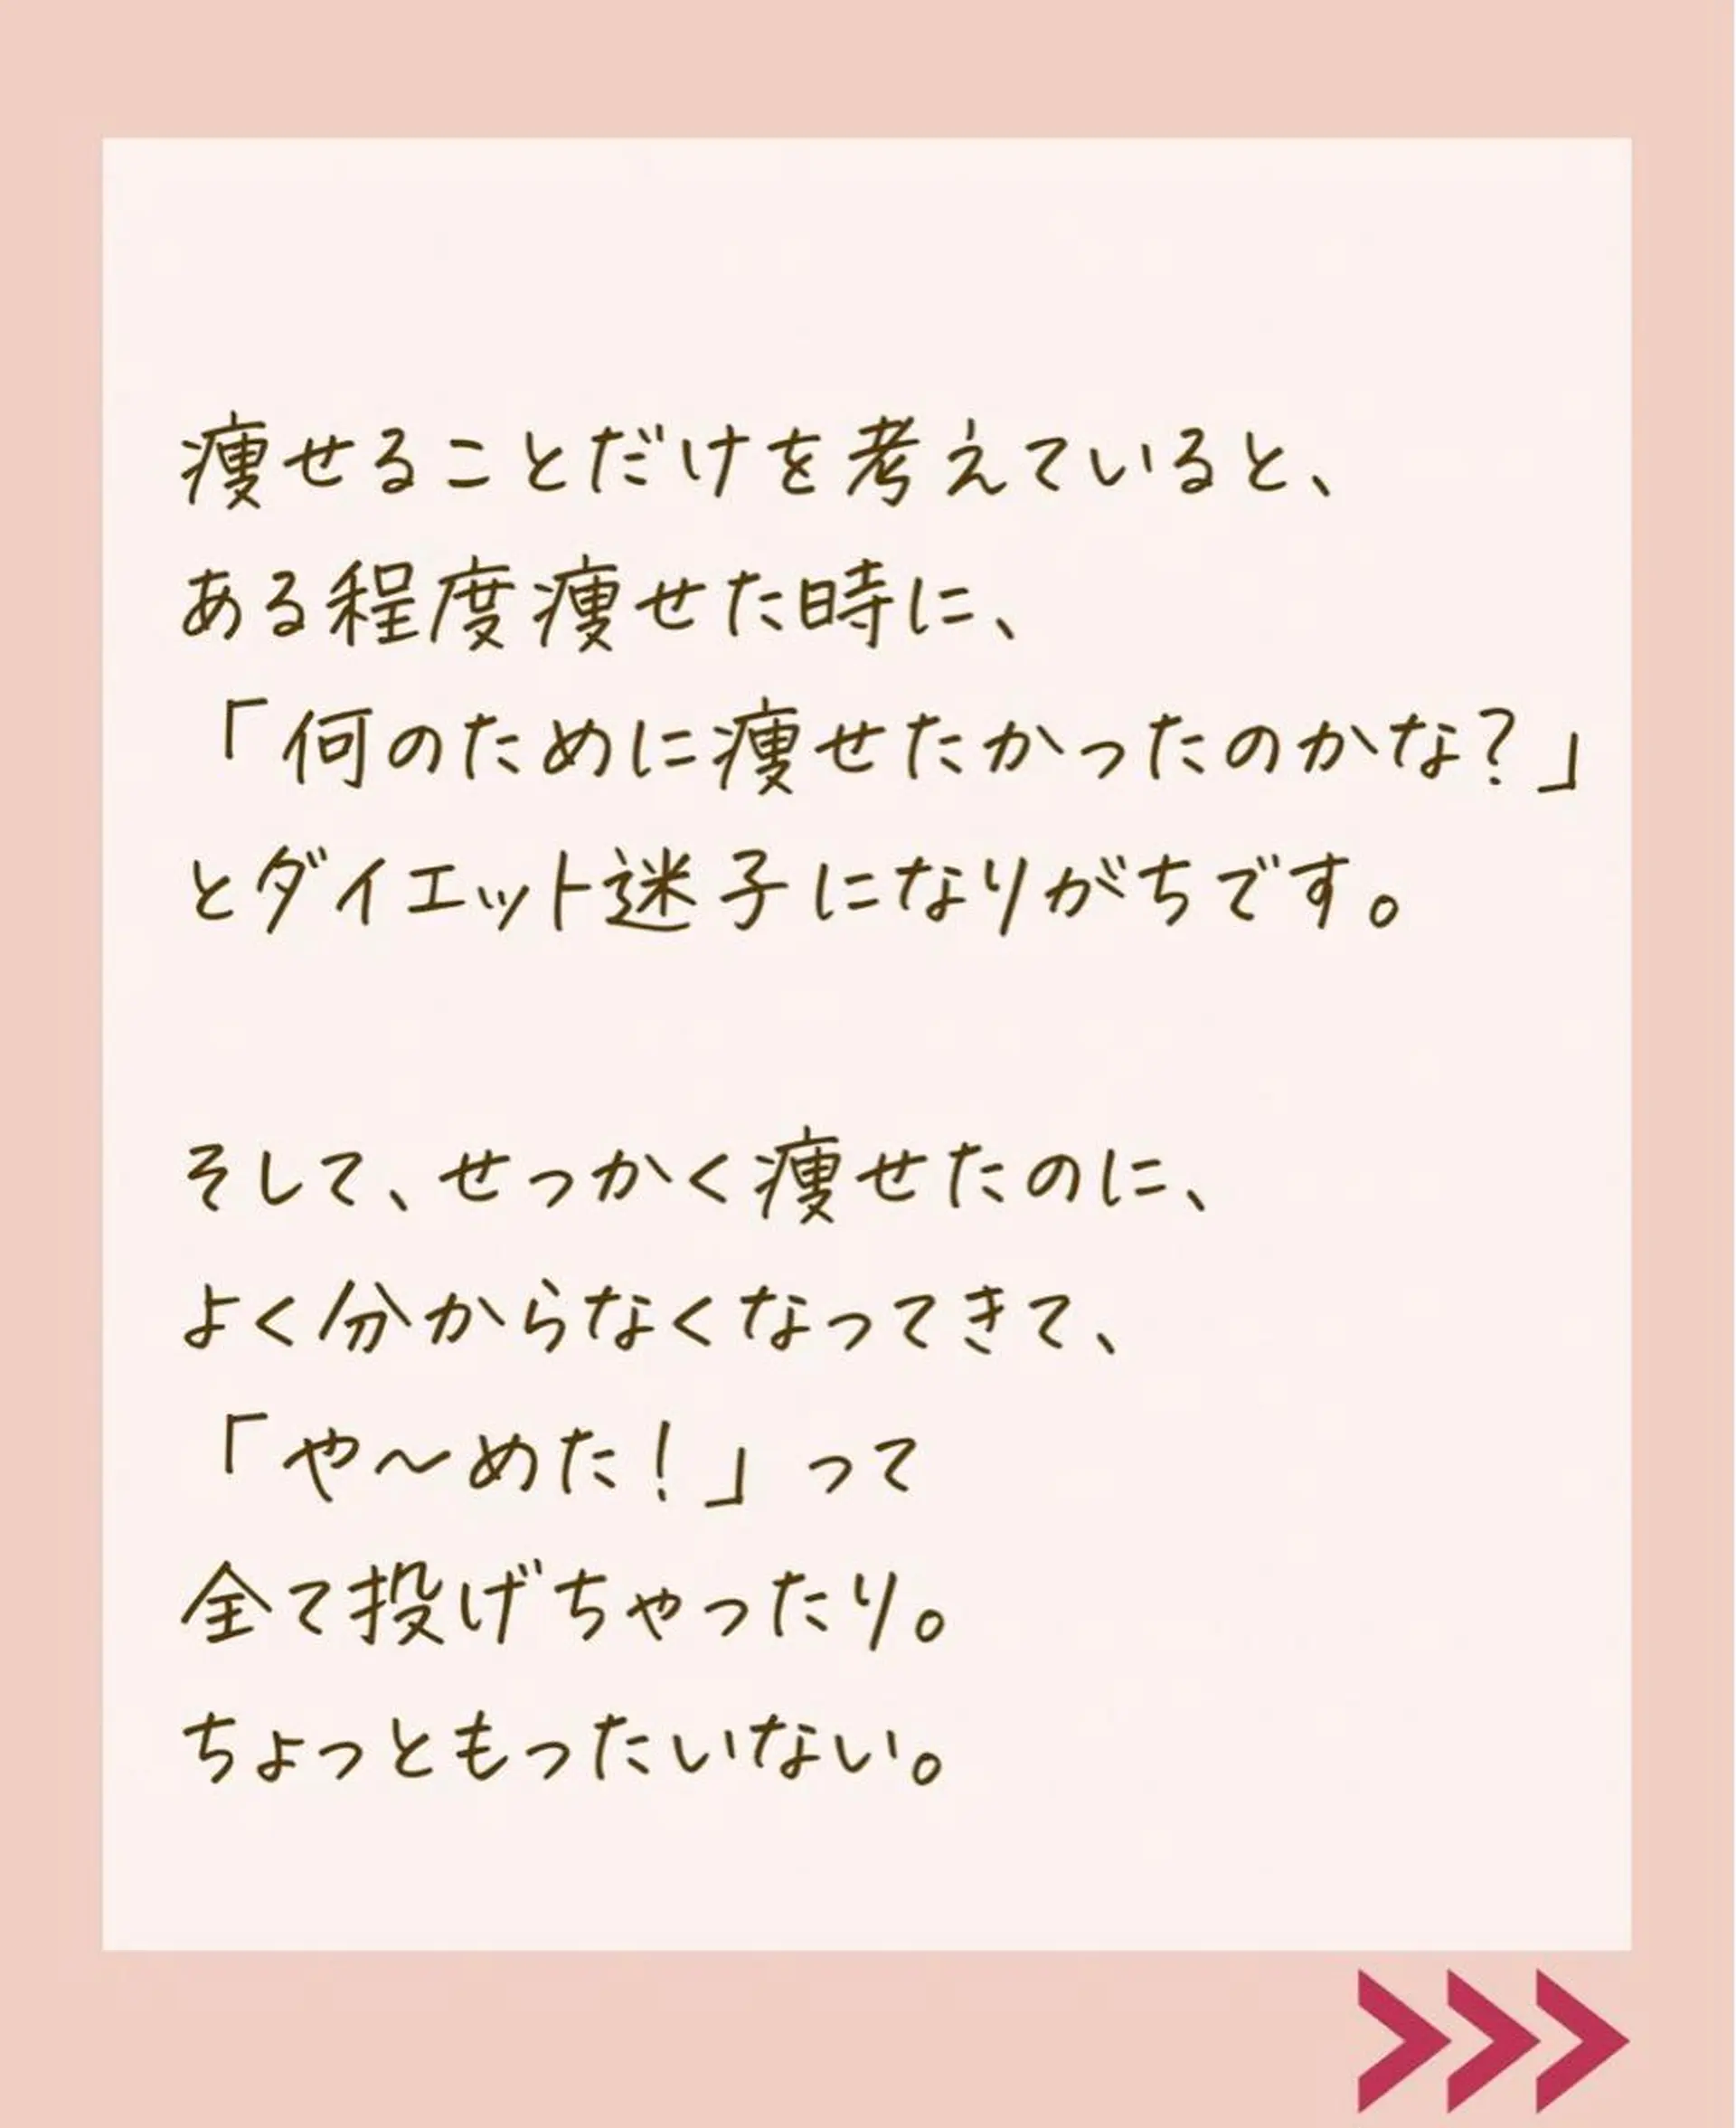 痩せることだけを考えていると、
ある程度痩せた時に、
「何のために痩せたかったのかな?」
とダイエット迷子になりがちです。
そして、せっかく痩せたのに、
よく分からなくなってきて、
「や〜めた!」って
全て投げちゃったり。
ちょっともったいない。